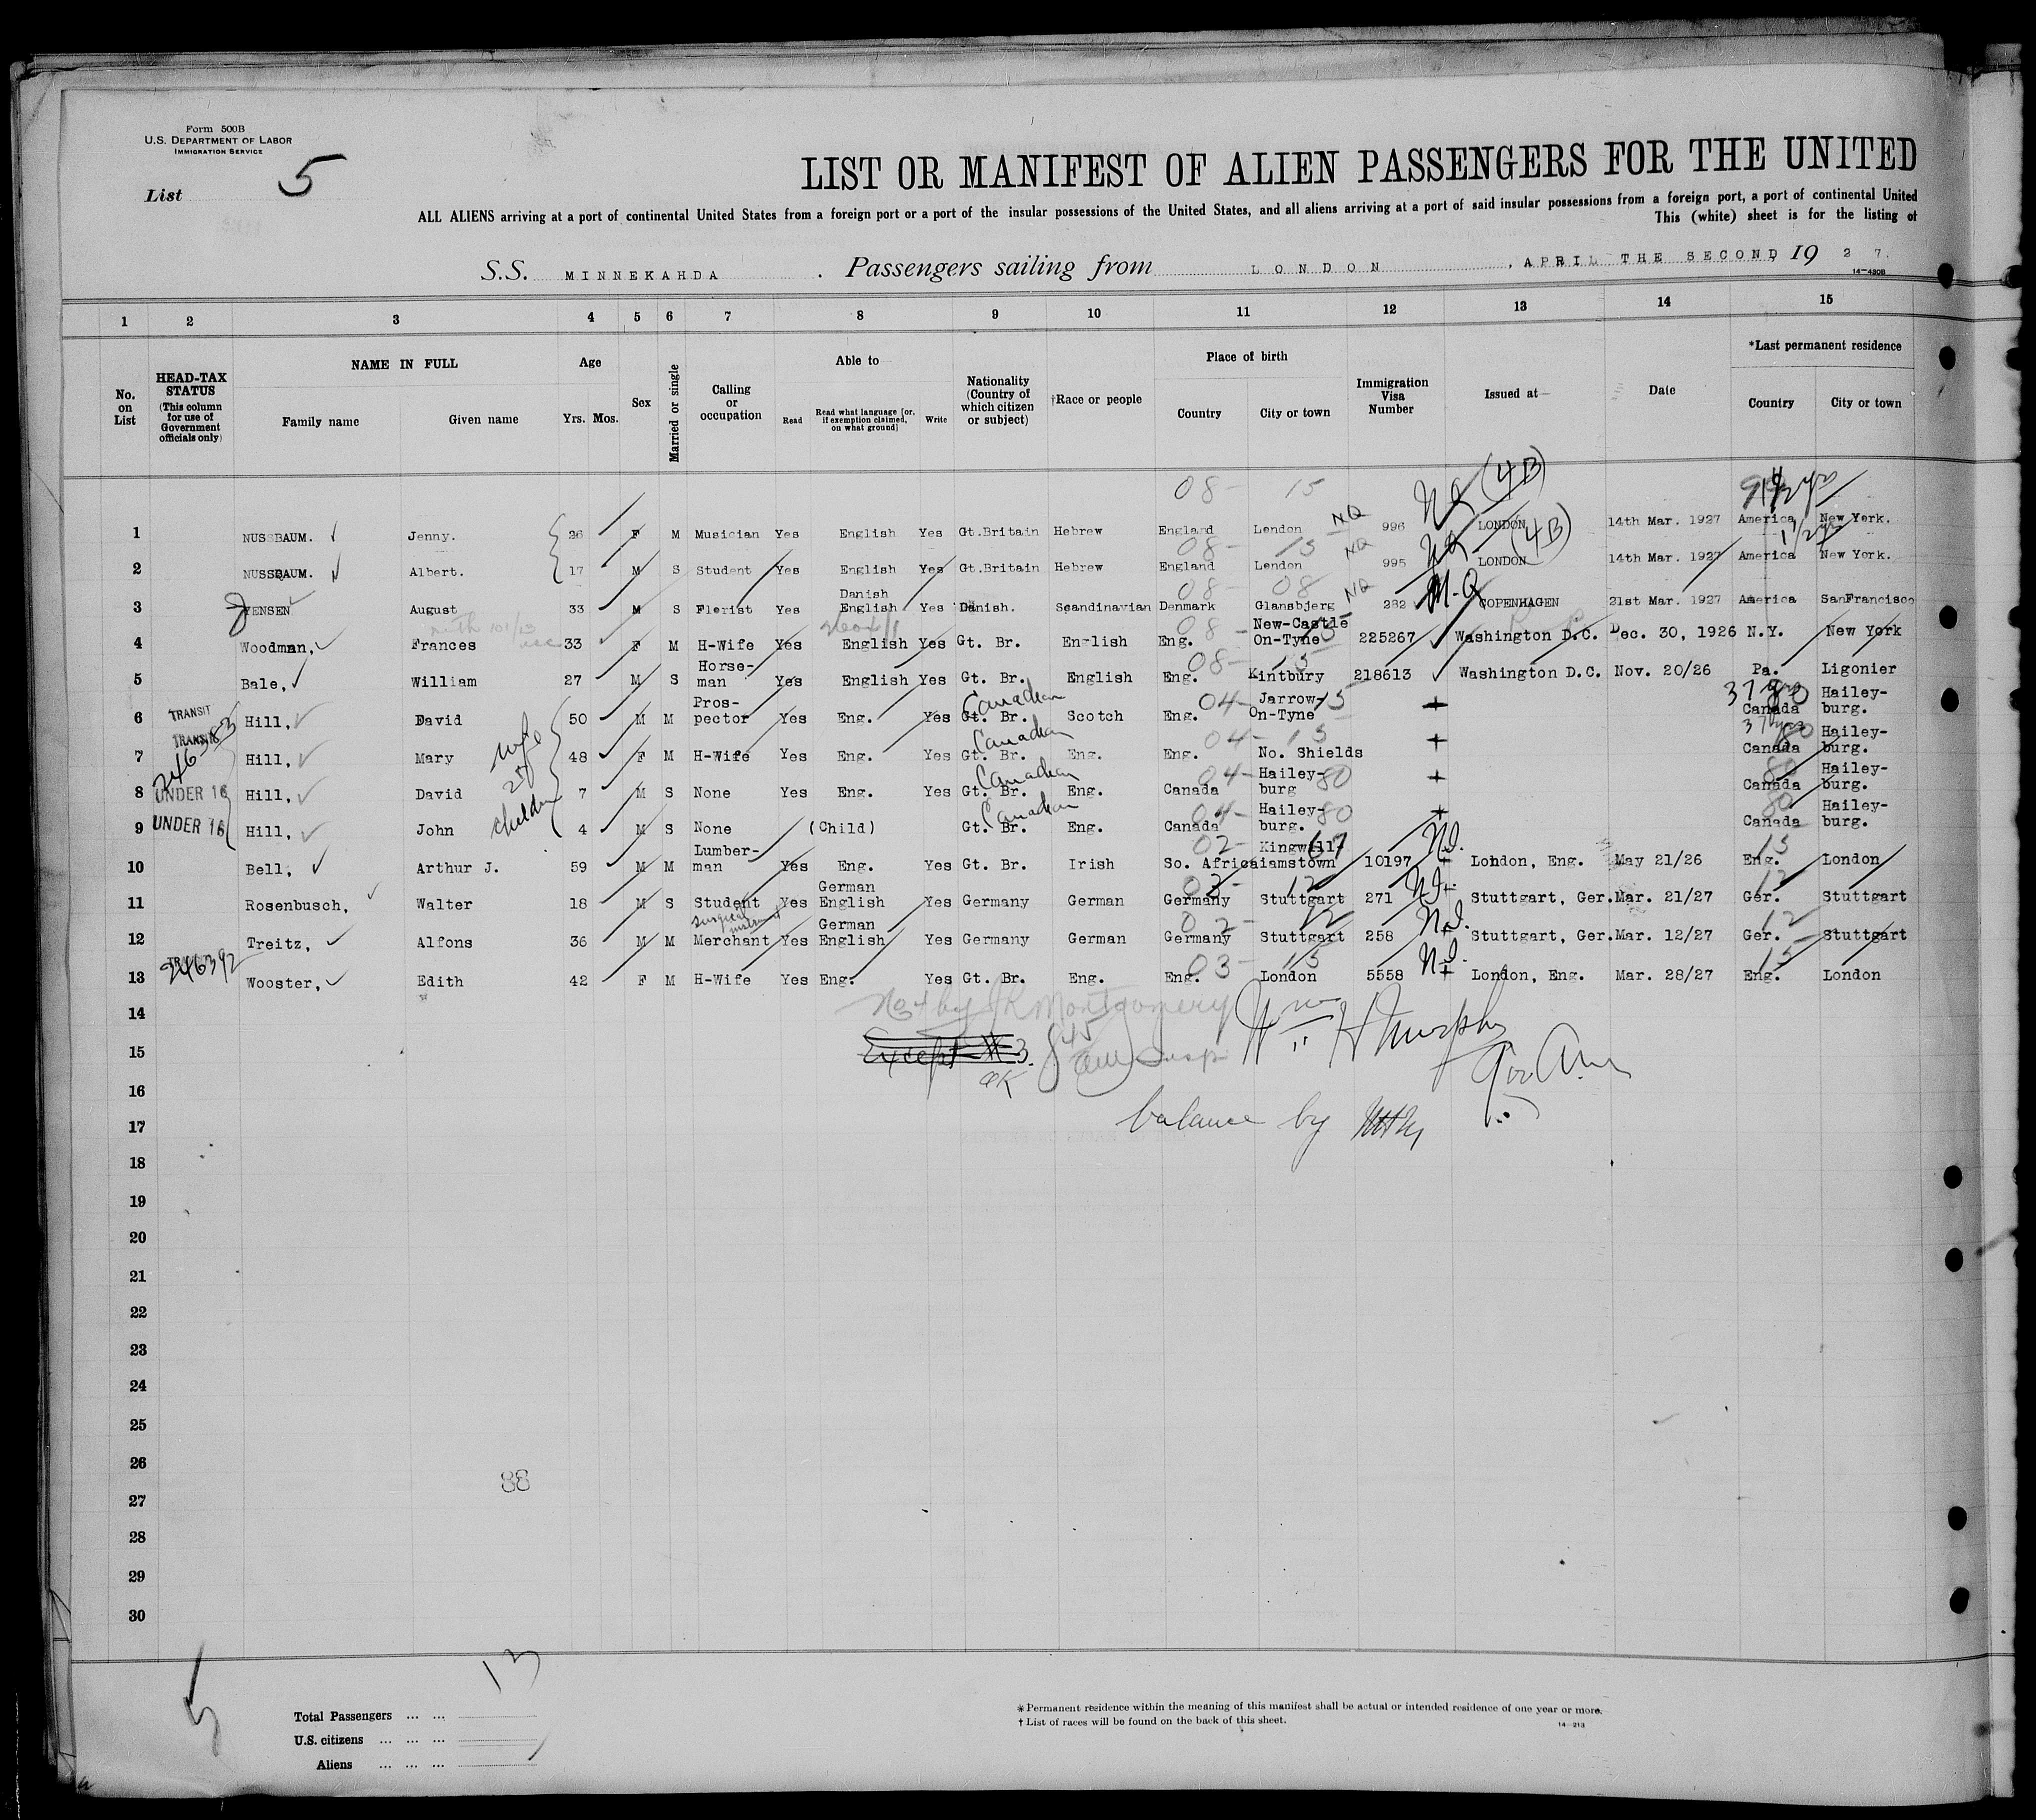 Form 500B
U.S. DEPARTMENT OF LABOR
IMMIGRATION SERVICE
List 5
LIST OR MANIFEST OF ALIEN PASSENGERS FOR THE UNITED
ALL ALIENS arriving at a port of continental United States from a foreign port or a port of the insular possessions of the United States, and all aliens arriving at a port of said insular possessions from a foreign port, a port of continental United
This (white) sheet is for the listing of
S.S. MINNEKAHDA. Passengers sailing from LONDON, APRIL THE SECOND, 1927.
14-430B
1 2 3 4 5 6 7 8 9 10 11 12 13 14 15
No. on List
HEAD-TAX STATUS (This column for use of Government officials only)
NAME IN FULL Family name Given name
Age Yrs. Mos.
Sex
Married or single
Calling or occupation
Able to Read Read what language [or, if exemption claimed, on what ground] Write
Nationality (Country of which citizen or subject)
†Race or people
Place of birth Country City or town
Immigration Visa Number
Issued at
Date
*Last permanent residence Country City or town
08- 15 NQ (4B)
1 NUSSBAUM. Jenny. 26 F M Musician Yes English Yes Gt.Britain Hebrew England London NQ 996 LONDON 14th Mar. 1927 America New York.
08- 15 NQ NQ (4B) 1/2
2 NUSSBAUM. Albert. 17 M S Student Yes English Yes Gt.Britain Hebrew England London 995 LONDON 14th Mar. 1927 America New York.
08- 08 NQ
3 JENSEN August 33 M S Florist Yes Danish English Yes Danish. Scandinavian Denmark Glansbjerg 282 N.Q COPENHAGEN 21st Mar. 1927 America SanFrancisco
08-
4 Woodman, Frances 33 F M H-Wife Yes English Yes Gt. Br. English Eng. New-Castle On-Tyne 225267 Washington D.C. Dec. 30, 1926 N.Y. New York
08- 15
5 Bale, William 27 M S Horse-man Yes English Yes Gt. Br. English Eng. Kintbury 218613 Washington D.C. Nov. 20/26 Pa. Ligonier
6 TRANSIT Hill, David 50 M M Pros-pector Yes Eng. Yes Canadian Gt. Br. Scotch 04- Eng. Jarrow-On-Tyne 15 Canada 80 Hailey-burg.
7 TRANSIT 246383 Hill, Mary wife 48 F M H-Wife Yes Eng. Yes Canadian Gt. Br. Eng. 04- 15 Eng. No. Shields Canada 80 Hailey-burg.
8 UNDER 16 Hill, David 2 7 M S None Yes Eng. Yes Canadian Gt. Br. Eng. 04- Canada Hailey-burg 80 Canada 80 Hailey-burg.
9 UNDER 16 Hill, John children 4 M S None (Child) Canadian Gt. Br. Eng. 04- Canada Hailey-burg. 80 Canada 80 Hailey-burg.
10 Bell, Arthur J. 59 M M Lumber-man Yes Eng. Yes Gt. Br. Irish 02- So. Africa Kingwill-iamstown 67 10197 London, Eng. May 21/26 Eng. 15 London
11 Rosenbusch, Walter 18 M S Student Yes German English Yes Germany German 03- 12 Germany Stuttgart 271 Stuttgart, Ger. Mar. 21/27 Ger. 12 Stuttgart
12 Treitz, Alfons 36 M M surgical Merchant Yes German English Yes Germany German 02- 12 Germany Stuttgart 258 Stuttgart, Ger. Mar. 12/27 Ger. 12 Stuttgart
13 246392 Wooster, Edith 42 F M H-Wife Yes Eng. Yes Gt. Br. Eng. 03- 15 Eng. London 5558 London, Eng. Mar. 28/27 Eng. 15 London
14 by Montgomery Wm H Murphy
15 Except #3.
16 OK
17 balance by
18
19
20
21
22
23
24
25
26
88
27
28
29
30
5 13
Total Passengers
U.S. citizens
Aliens
* Permanent residence within the meaning of this manifest shall be actual or intended residence of one year or more.
† List of races will be found on the back of this sheet.
14-213